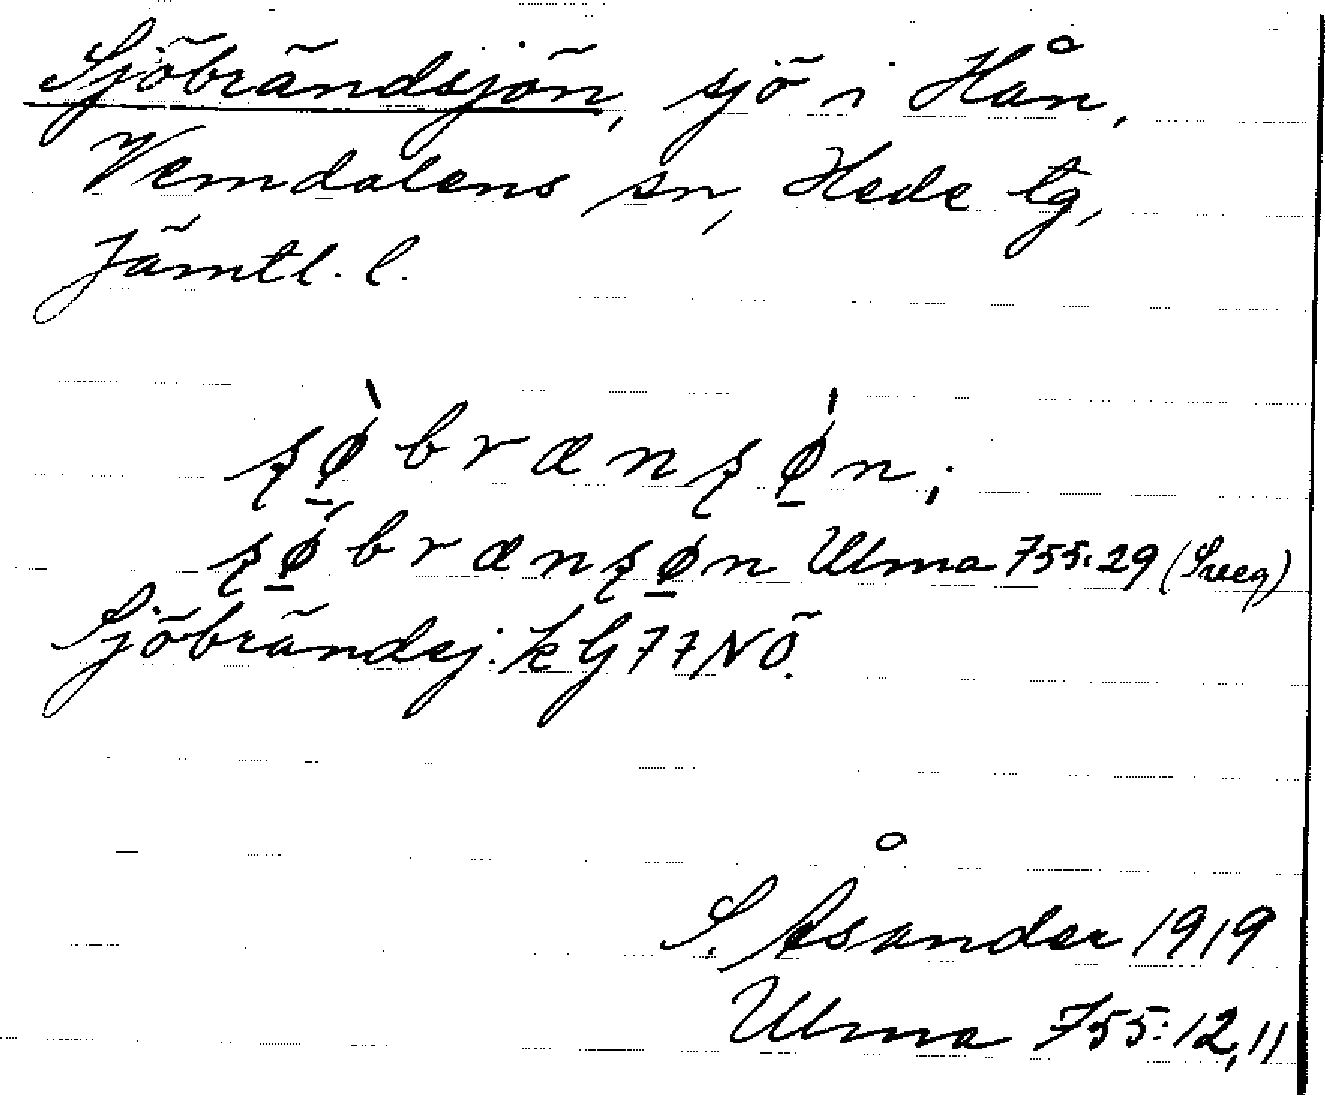 Sjöbrändsjön, sjö i Hån,
Vemdalens sn, Hede tg,
Jämtl. l.
ʂø̲̀brænʂø̲̍n;
ʂǿ̲brænʂø̲n Ulma 755:29 (Sveg)
Sjöbrändsj. kG77NÖ.
S. Åsander 1919
Ulma 755:12,11